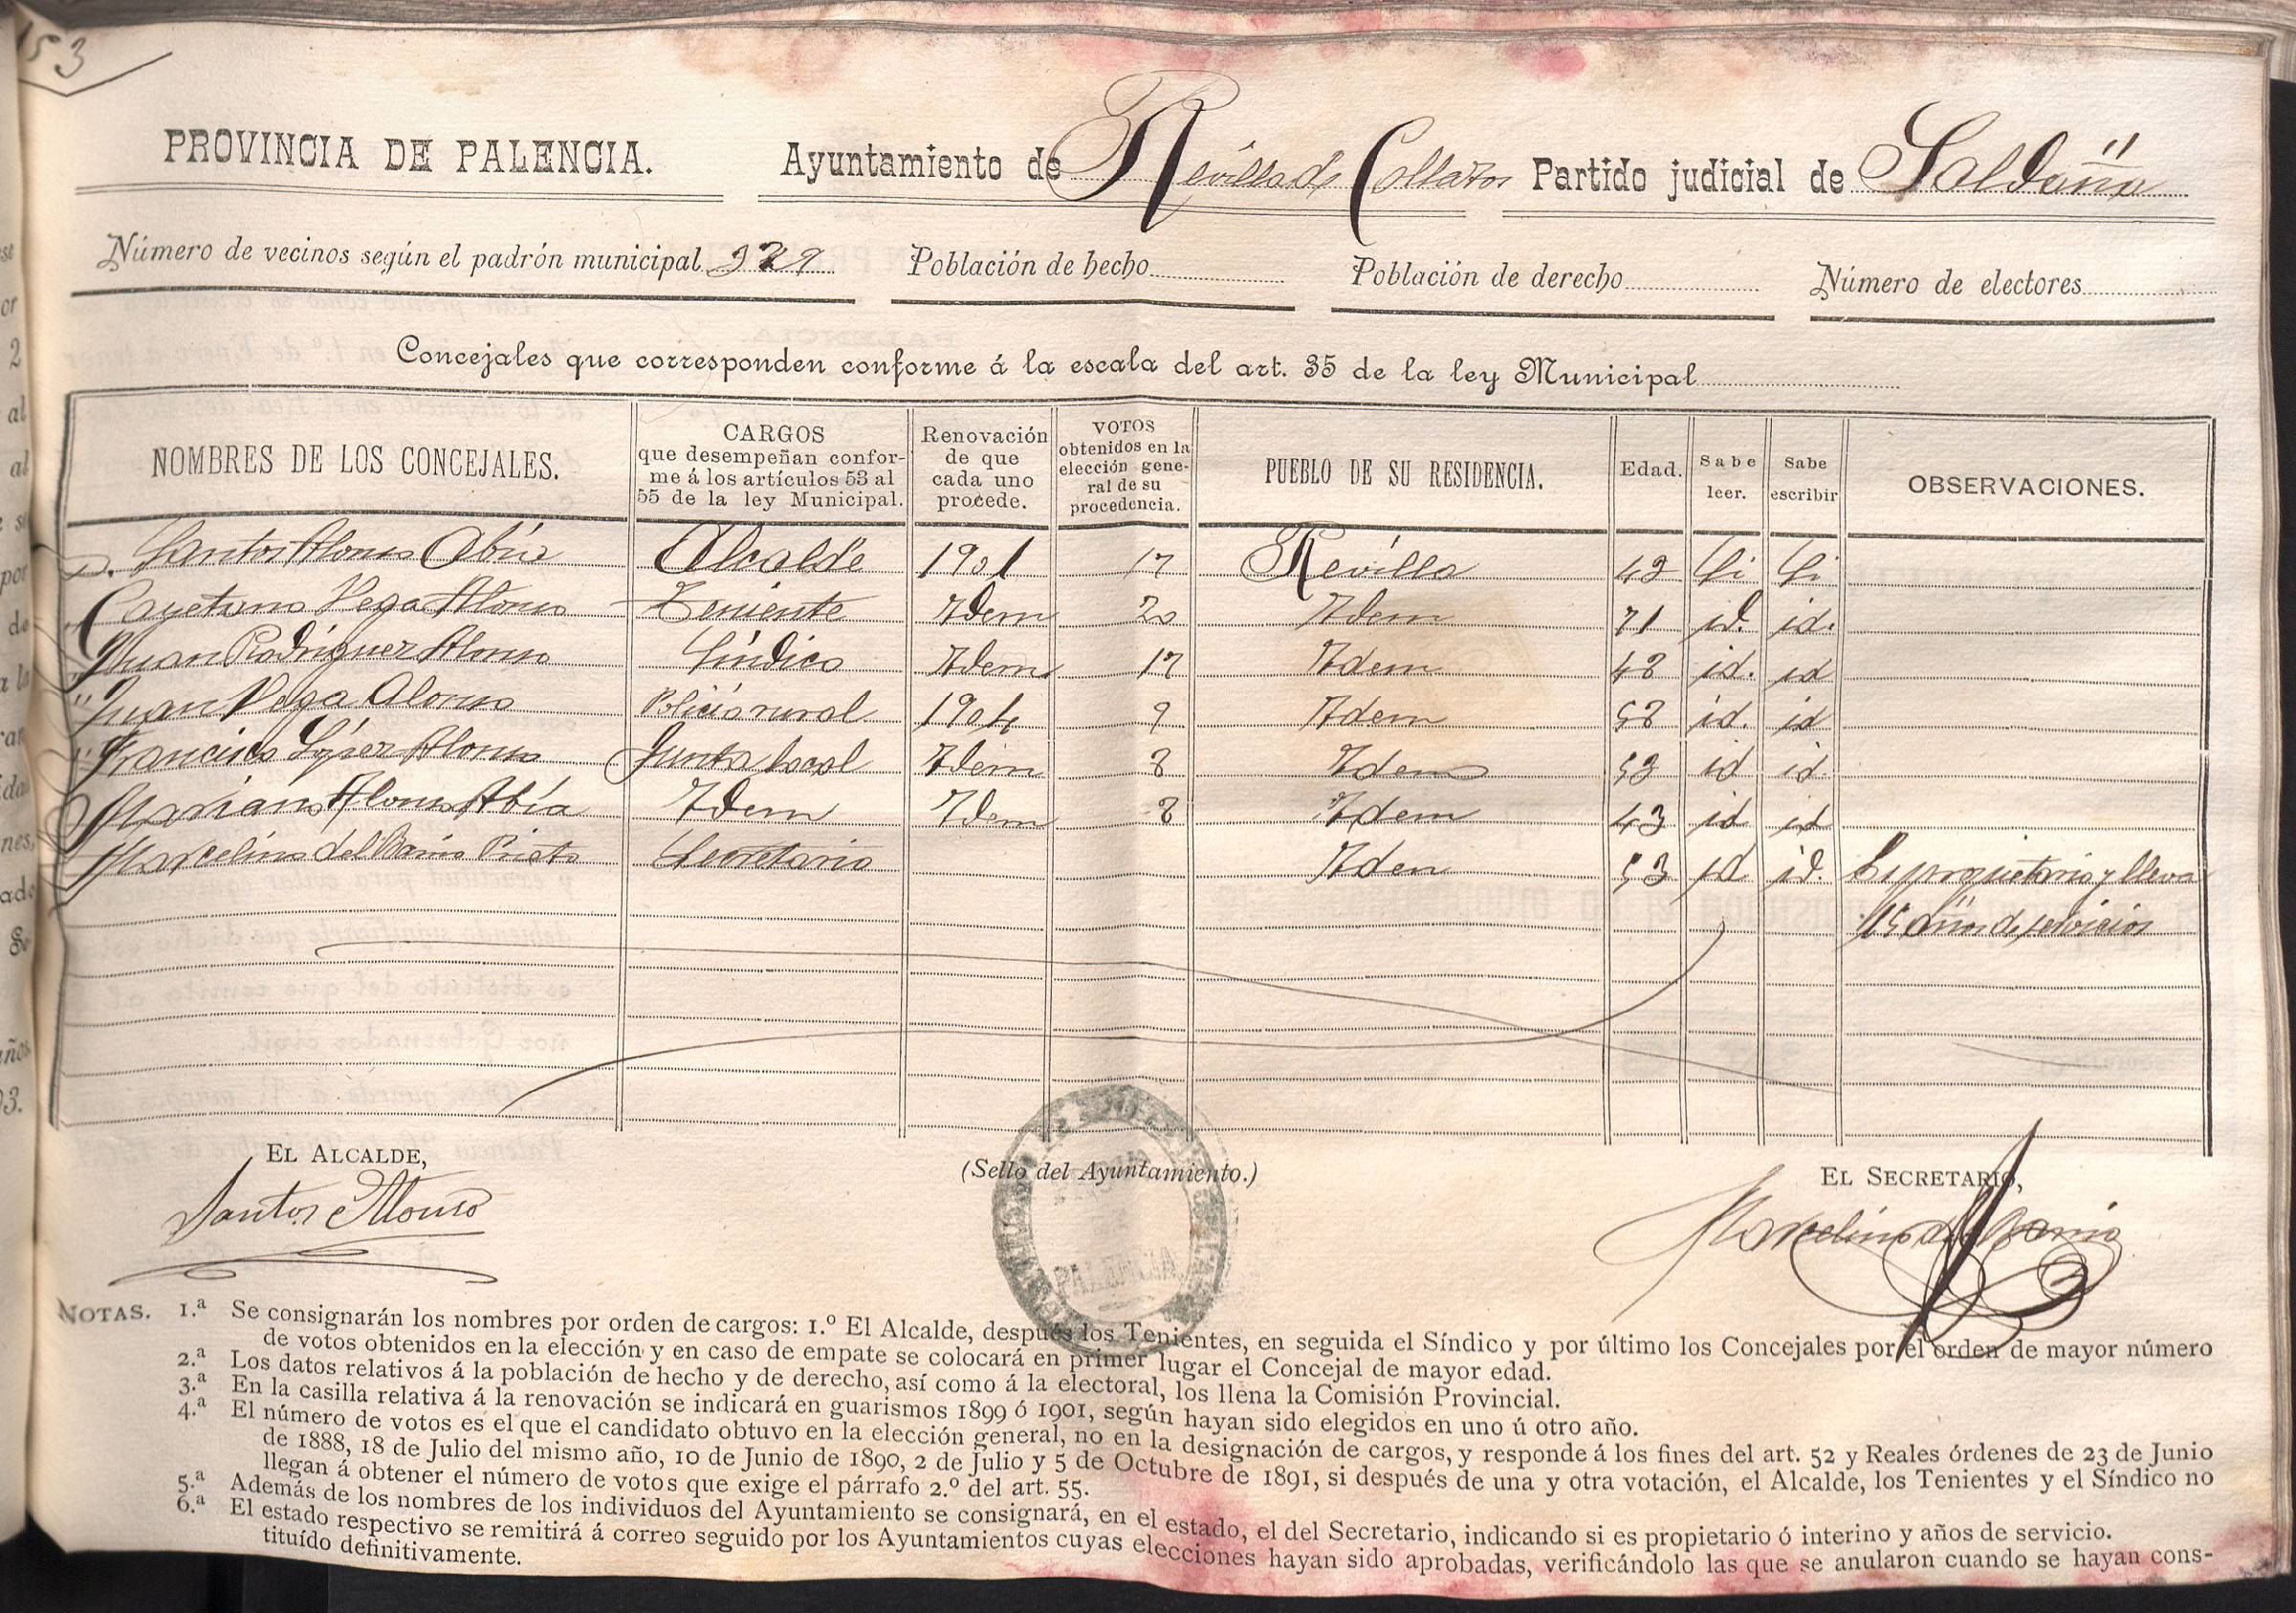 153
PROVINCIA DE PALENCIA. Ayuntamiento de Revilla de Collazos Partido judicial de Saldaña
Número de vecinos según el padrón municipal 329 Población de hecho Población de derecho Número de electores
Concejales que corresponden conforme á la escala del art. 35 de la ley Municipal
NOMBRES DE LOS CONCEJALES. CARGOS que desempeñan conforme á los artículos 53 al 55 de la ley Municipal. Renovación de que cada uno procede. VOTOS obtenidos en la elección general de su procedencia. PUEBLO DE SU RESIDENCIA. Edad. Sabe leer. Sabe escribir OBSERVACIONES.
D. Santos Alonso Abia Alcalde 1901 17 Revilla 42 Si Si
" Cayetano Vega Alonso Teniente Idem 20 Idem 71 id. id.
" Juan Rodriguez Alonso Síndico Idem 17 Idem 48 id. id
" Juan Vega Alonso Policia rural 1904 9 Idem 58 id. id
" Francisco López Alonso Junta local Idem 8 Idem 52 id id.
Mariano Alonso Abía Idem Idem 8 Idem 43 id id
Marcelino del Barrio Prieto Secretario Idem 53 id id. Es propietario y lleva
15 años de servicios
EL ALCALDE, (Sello del Ayuntamiento.) EL SECRETARIO,
Santos Alonso Marcelino del Barrio
PALENCIA
NOTAS. 1.ª Se consignarán los nombres por orden de cargos: 1.º El Alcalde, después los Tenientes, en seguida el Síndico y por último los Concejales por el orden de mayor número
de votos obtenidos en la elección y en caso de empate se colocará en primer lugar el Concejal de mayor edad.
2.ª Los datos relativos á la población de hecho y de derecho, así como á la electoral, los llena la Comisión Provincial.
3.ª En la casilla relativa á la renovación se indicará en guarismos 1899 ó 1901, según hayan sido elegidos en uno ú otro año.
4.ª El número de votos es el que el candidato obtuvo en la elección general, no en la designación de cargos, y responde á los fines del art. 52 y Reales órdenes de 23 de Junio
de 1888, 18 de Julio del mismo año, 10 de Junio de 1890, 2 de Julio y 5 de Octubre de 1891, si después de una y otra votación, el Alcalde, los Tenientes y el Síndico no
llegan á obtener el número de votos que exige el párrafo 2.º del art. 55.
5.ª Además de los nombres de los individuos del Ayuntamiento se consignará, en el estado, el del Secretario, indicando si es propietario ó interino y años de servicio.
6.ª El estado respectivo se remitirá á correo seguido por los Ayuntamientos cuyas elecciones hayan sido aprobadas, verificándolo las que se anularon cuando se hayan cons-
tituído definitivamente.